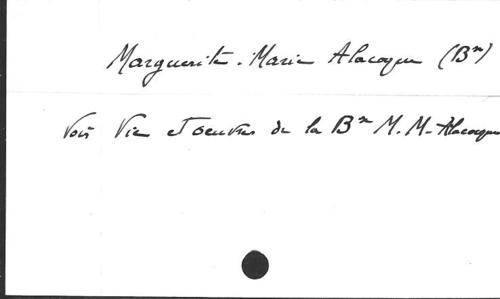 Marguerite-Marie Alacoque (Bse)
Voir Vie et oeuvres de la Bse M. M-Alacoque